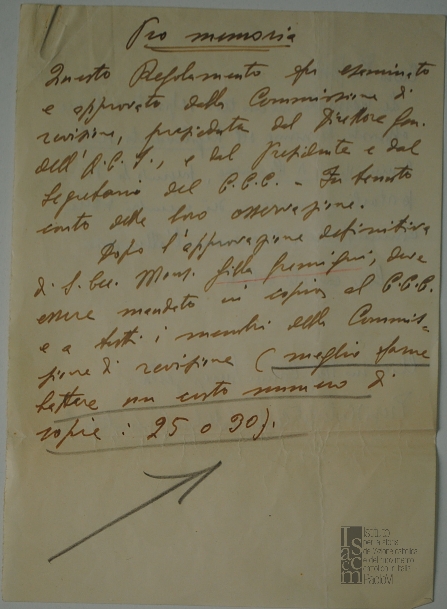 Pro memoria
Questo Regolamento fu esaminato
e approvato dalla Commissione di
revisione, presieduta dal Direttore Gen.
dell'A.C.I., e dal Presidente e dal
Segretario del C.C.C. - Fu tenuto
conto delle loro osservazione.
Dopo l'approvazione definitiva
di S. Ecc. Mons. deve
essere mandato in copia al C.C.C.
e a tutti i membri della Commis-
sione di revisione (meglio farne
battere un certo numero di
copie: 25 o 30).
Istituto
per la storia
dell'Azione cattolica
e del movimento
cattolico in Italia
Paolo VI